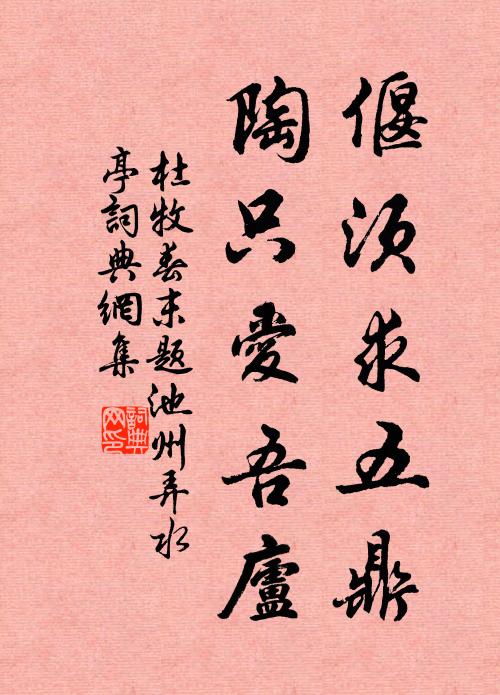 偃須求五鼎
陶只愛吾廬
杜牧春末題池州弄水
亭詞典網集
詞典网印